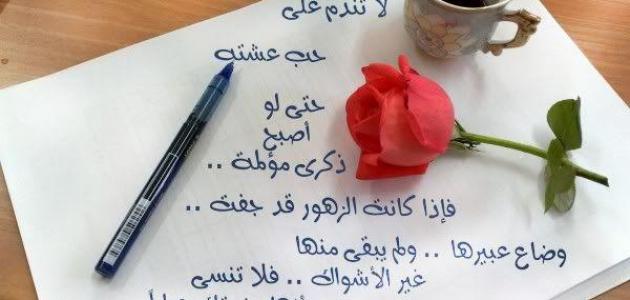 لا تندم على
حب عشته
حتى لو
أصبح
ذكرى مؤلمة ..
فإذا كانت الزهور قد جفت ..
وضاع عبيرها .. ولم يبقى منها
غير الأشواك .. فلا تنسى